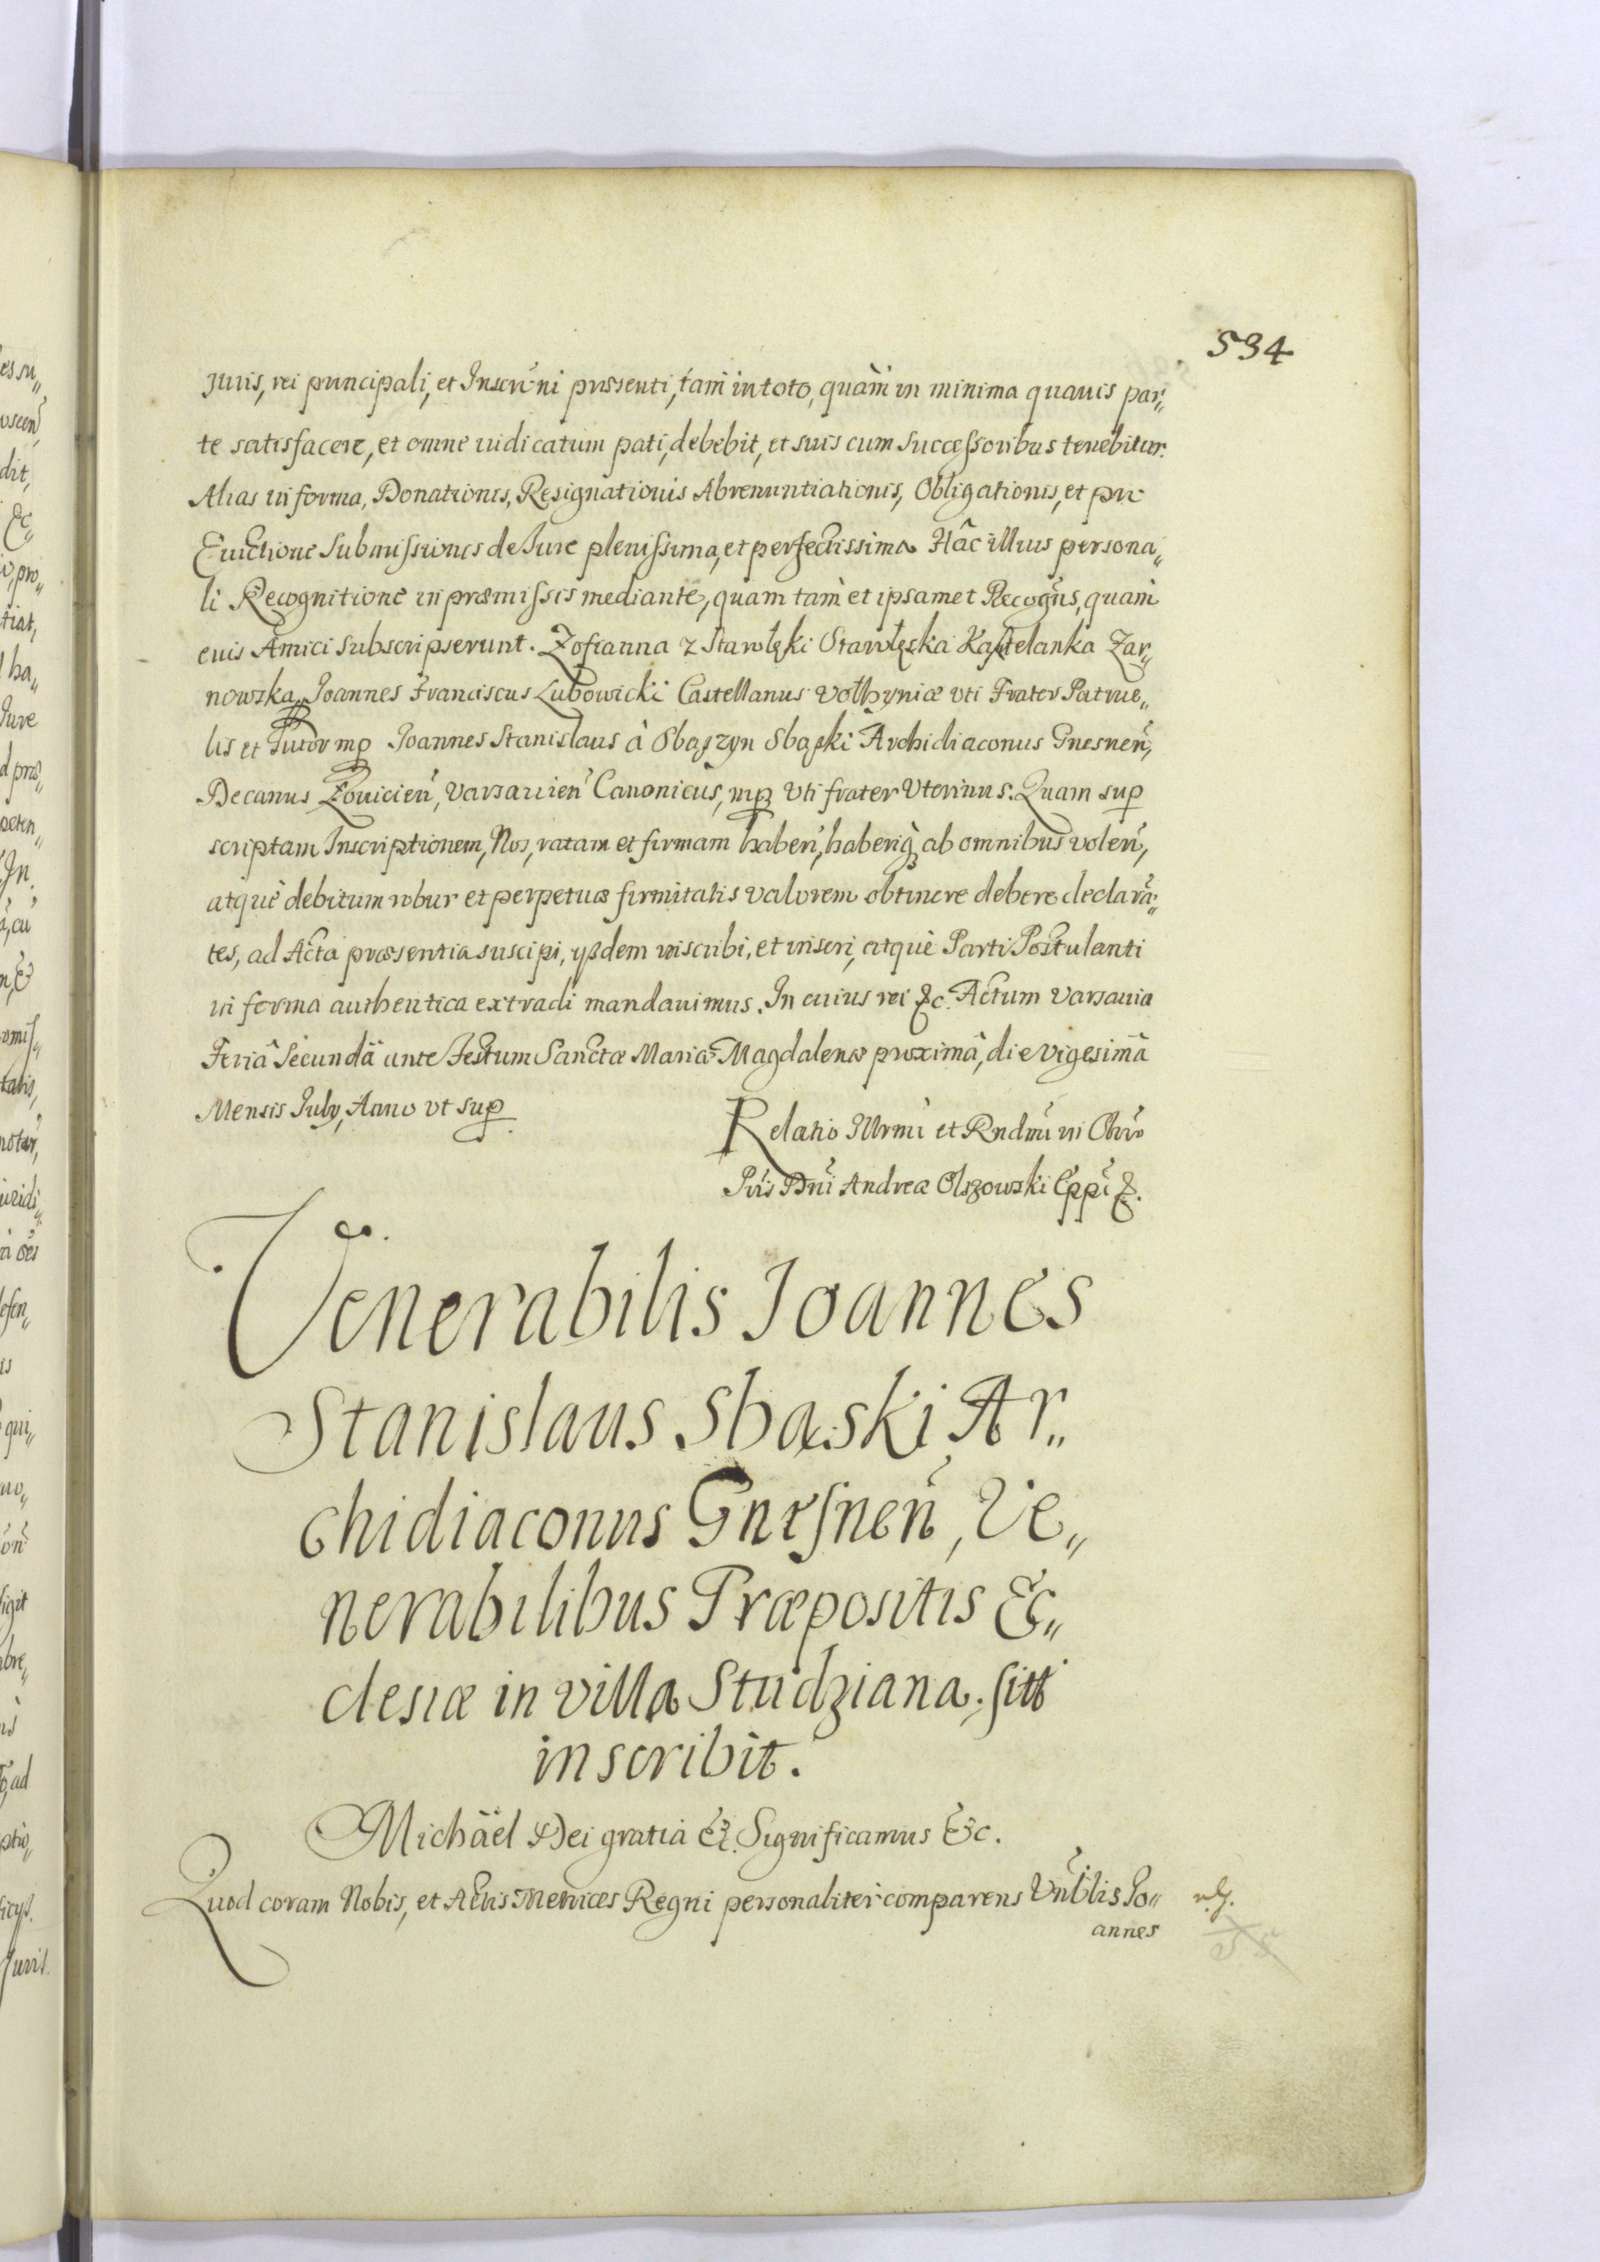 534
Juris, rei principali, et Inscrini præsenti, tam in toto, quàm in minima quavis par„
te satisfacere, et omne iudicatum pati, debebit, et suis cum Successoribus tenebitur.
Alias in forma, Donationis, Resignationis Abrenuntiationis, Obligationis, et pro
Evictione Submissiones de Jure plenissima, et perfectissima Hâc illius persona„
li Recognitione in præmissis mediante, quam tam et ipsamet Recogns, quàm
euis Amici subscripserunt. Zofianna z Stawlęki Stawlęska Kasztelanka Zar„
nowska, Joannes Franciscus Lubowicki Castellanus Volhyniæ vti Frater Patrue„
lis et Tutor mp Joannes Stanislaus à Sbąszyn Sbąski Archidiaconus Gnesnen,
Decanus Łovicien, Varsavien Canonicus, mp Vti frater Vterinus. Quam sup
scriptam Inscriptionem, Nos, ratam et firmam haben, haberiq ab omnibus volen,
atquè debitum robur et perpetuæ firmitatis valorem obtinere debere declara„
tes, ad Acta præsentia suscipi, ysdem inscribi, et inseri, atquè Parti Postulanti
in forma authentica extradi mandavimus. In cuius rei &c. Actum Varsavia
Feriâ Secundâ ante Festum Sanctæ Mariæ Magdalenæ proximâ, die vigesimâ
Mensis July, Anno vt sup
Relatio Illrmi et Rndmi in Chro
Pris Dni Andreæ Olszowski Eppi &.
Venerabilis Joannes
Stanislaus Sbąski Ar„
chidiaconus Gnesnen, Ve„
nerabilibus Præpositis Ec„
clesiæ in villa Studziana. sitt
inscribit.
Michäel Dei gratia &. Significamus &c.
Quod coram Nobis, et Actis Metrices Regni personaliter comparens Vnblis Jo„
annes